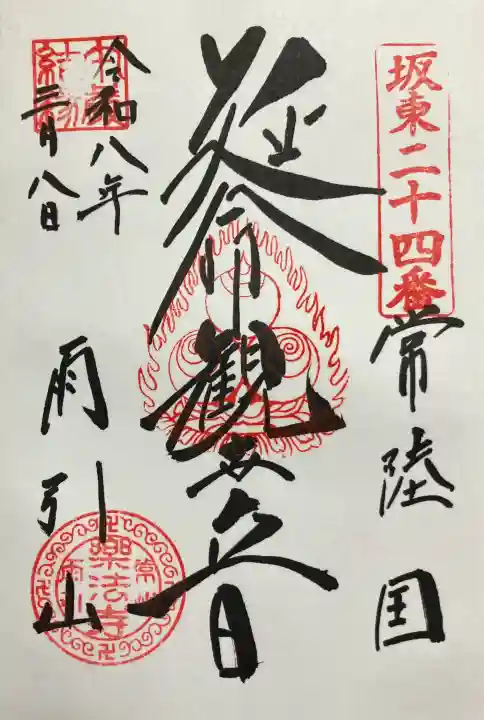 坂東二十四番
常陸国
延命観世音
雨引山
令和八年
三月八日
樂法寺